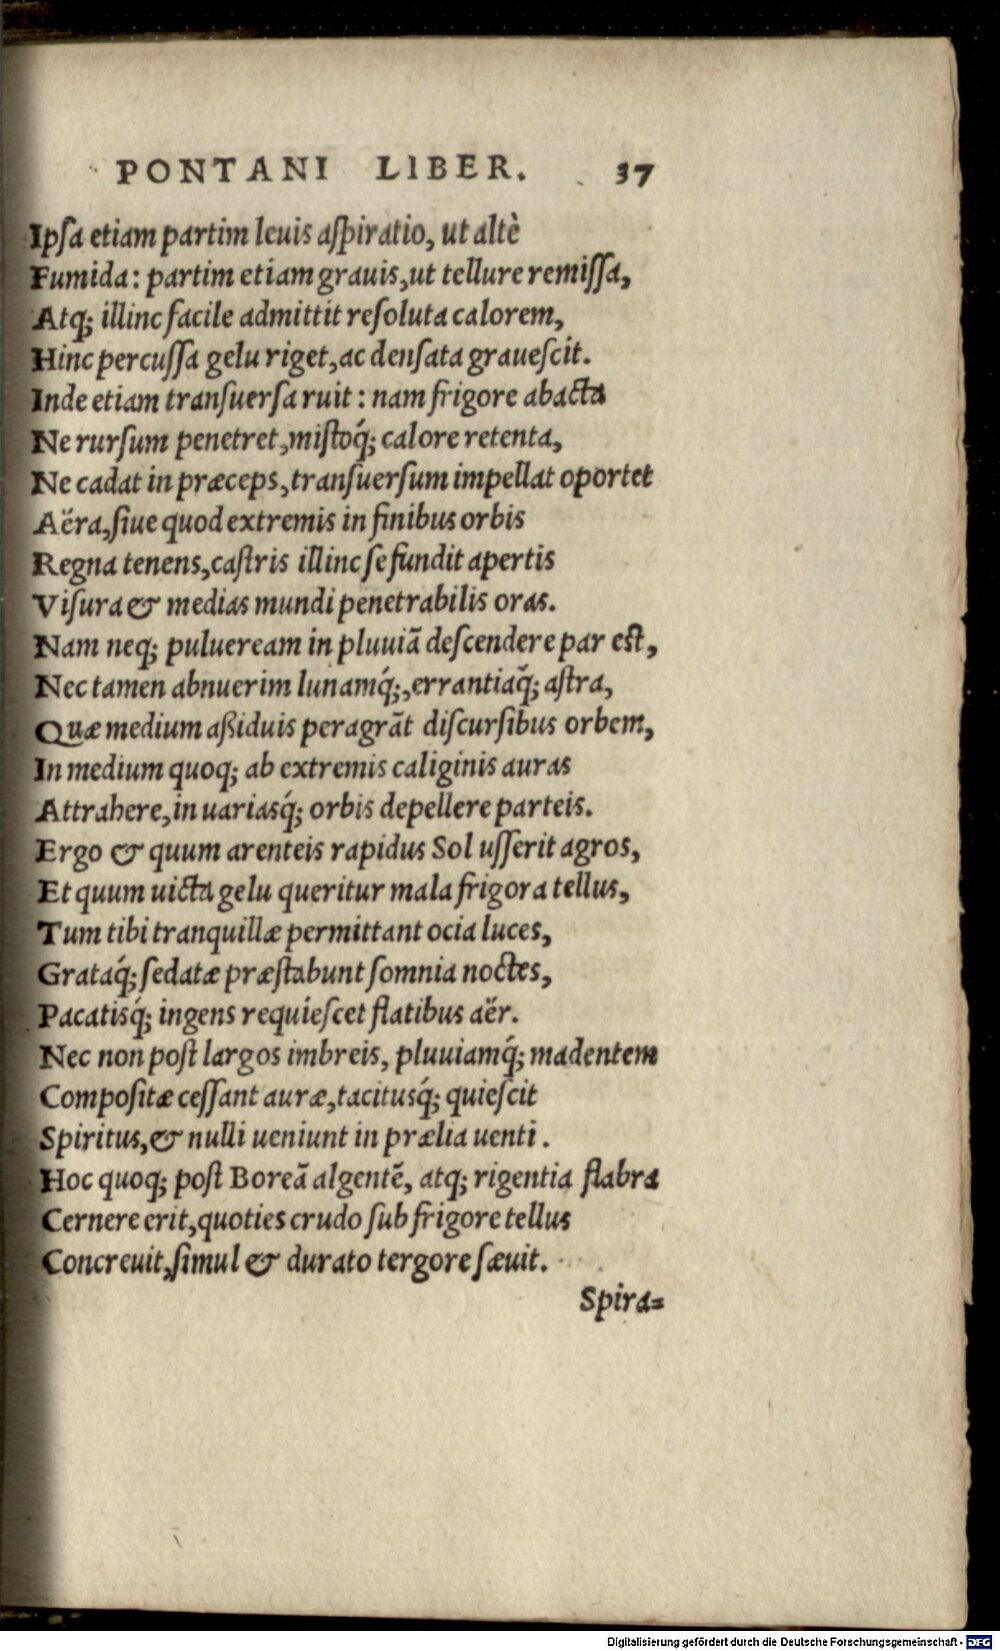 PONTANI LIBER. 37
Ipſa etiam partim leuis aſpiratio, ut altè
Fumida: partim etiam grauis, ut tellure remiſſa,
Atq; illinc facile admittit reſoluta calorem,
Hinc percuſſa gelu riget, ac denſata graueſcit.
Inde etiam tranſuerſa ruit: nam frigore abacta
Ne rurſum penetret, miſtoq́; calore retenta,
Ne cadat in præceps, tranſuerſum impellat oportet
Aëra, ſiue quod extremis in finibus orbis
Regna tenens, caſtris illinc ſe fundit apertis
Viſura & medias mundi penetrabilis oras.
Nam neq; pulueream in pluuiã deſcendere par eſt,
Nec tamen abnuerim lunamq́;, errantiaq́; aſtra,
Quæ medium aßiduis peragrãt diſcurſibus orbem,
In medium quoq; ab extremis caliginis auras
Attrahere, in uariasq́; orbis depellere parteis.
Ergo & quum arenteis rapidus Sol uſſerit agros,
Et quum uicta gelu queritur mala frigora tellus,
Tum tibi tranquillæ permittant ocia luces,
Grataq́; ſedatæ præſtabunt ſomnia noctes,
Pacatisq́; ingens requieſcet flatibus aër.
Nec non poſt largos imbreis, pluuiamq́; madentem
Compoſitæ ceſſant auræ, tacitusq́; quieſcit
Spiritus, & nulli ueniunt in prælia uenti.
Hoc quoq; poſt Boreã algentẽ, atq; rigentia flabra
Cernere erit, quoties crudo ſub frigore tellus
Concreuit, ſimul & durato tergore ſæuit.
Spira=
Digitalisierung gefördert durch die Deutsche Forschungsgemeinschaft - DFG